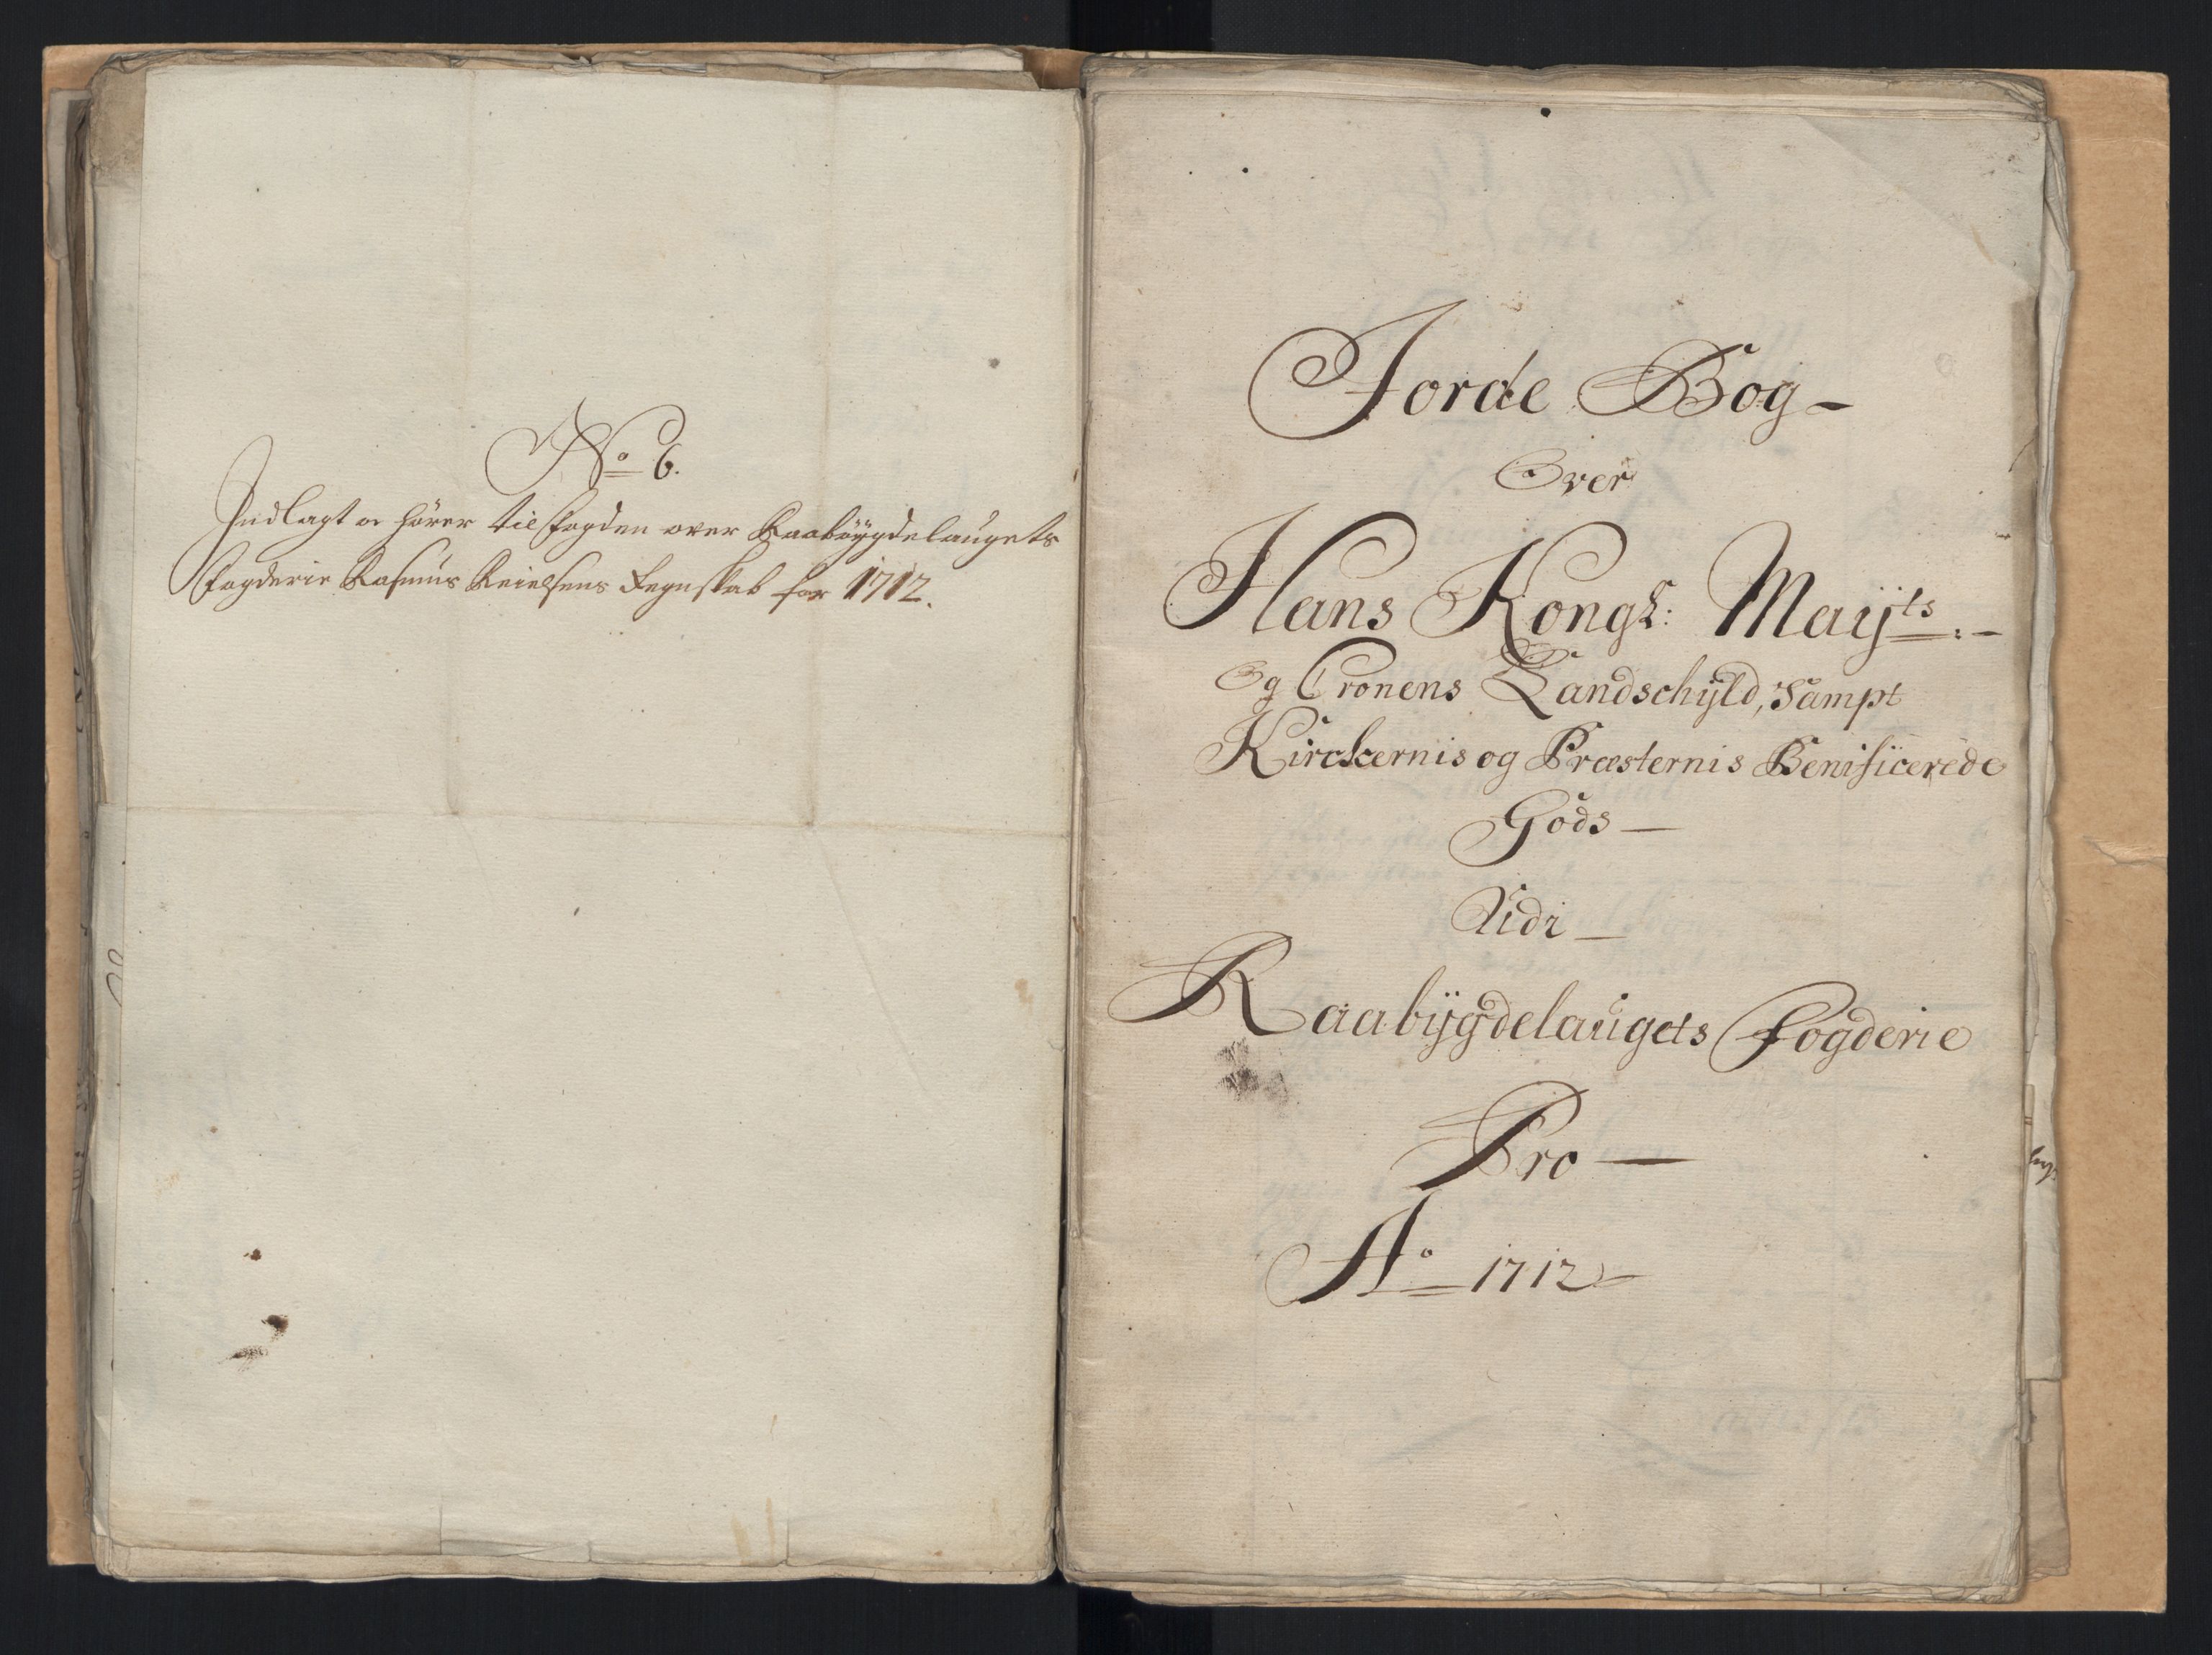 No 6.
Indlagt oc hörer til Fogden over Raabøygdelaugets
Fogderie Rasmus Nielsens Regnskab for 1712.
Jorde Bog -
Over
Hans Kongl: Mayts:-
Og Cronens Landschyld, Sampt
Kirckernis og Præsternis Benificerede
Gods -
Udi -
Raabygdelaugets Fogderie
Pro -
Ao 1712 -